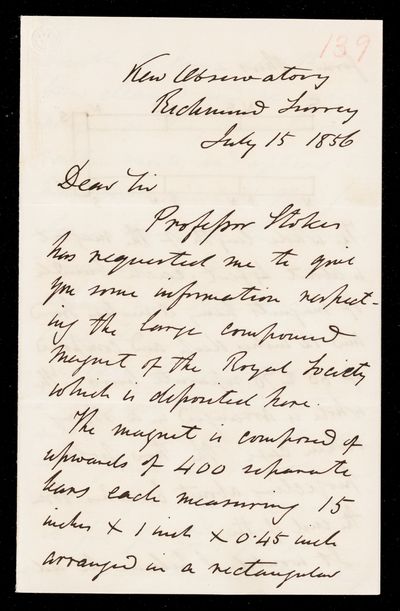 139
Kew Observatory
Richmond Surrey
July 15 1856
Dear Sir
Professor Stokes
has requested me to give
you some information respect-
ing the large compound
magnet of the Royal Society
which is deposited here.
The magnet is composed of
upwards of 400 separate
bars each measuring 15
inches X 1 inch X 0.45 inch
arranged in a rectangular